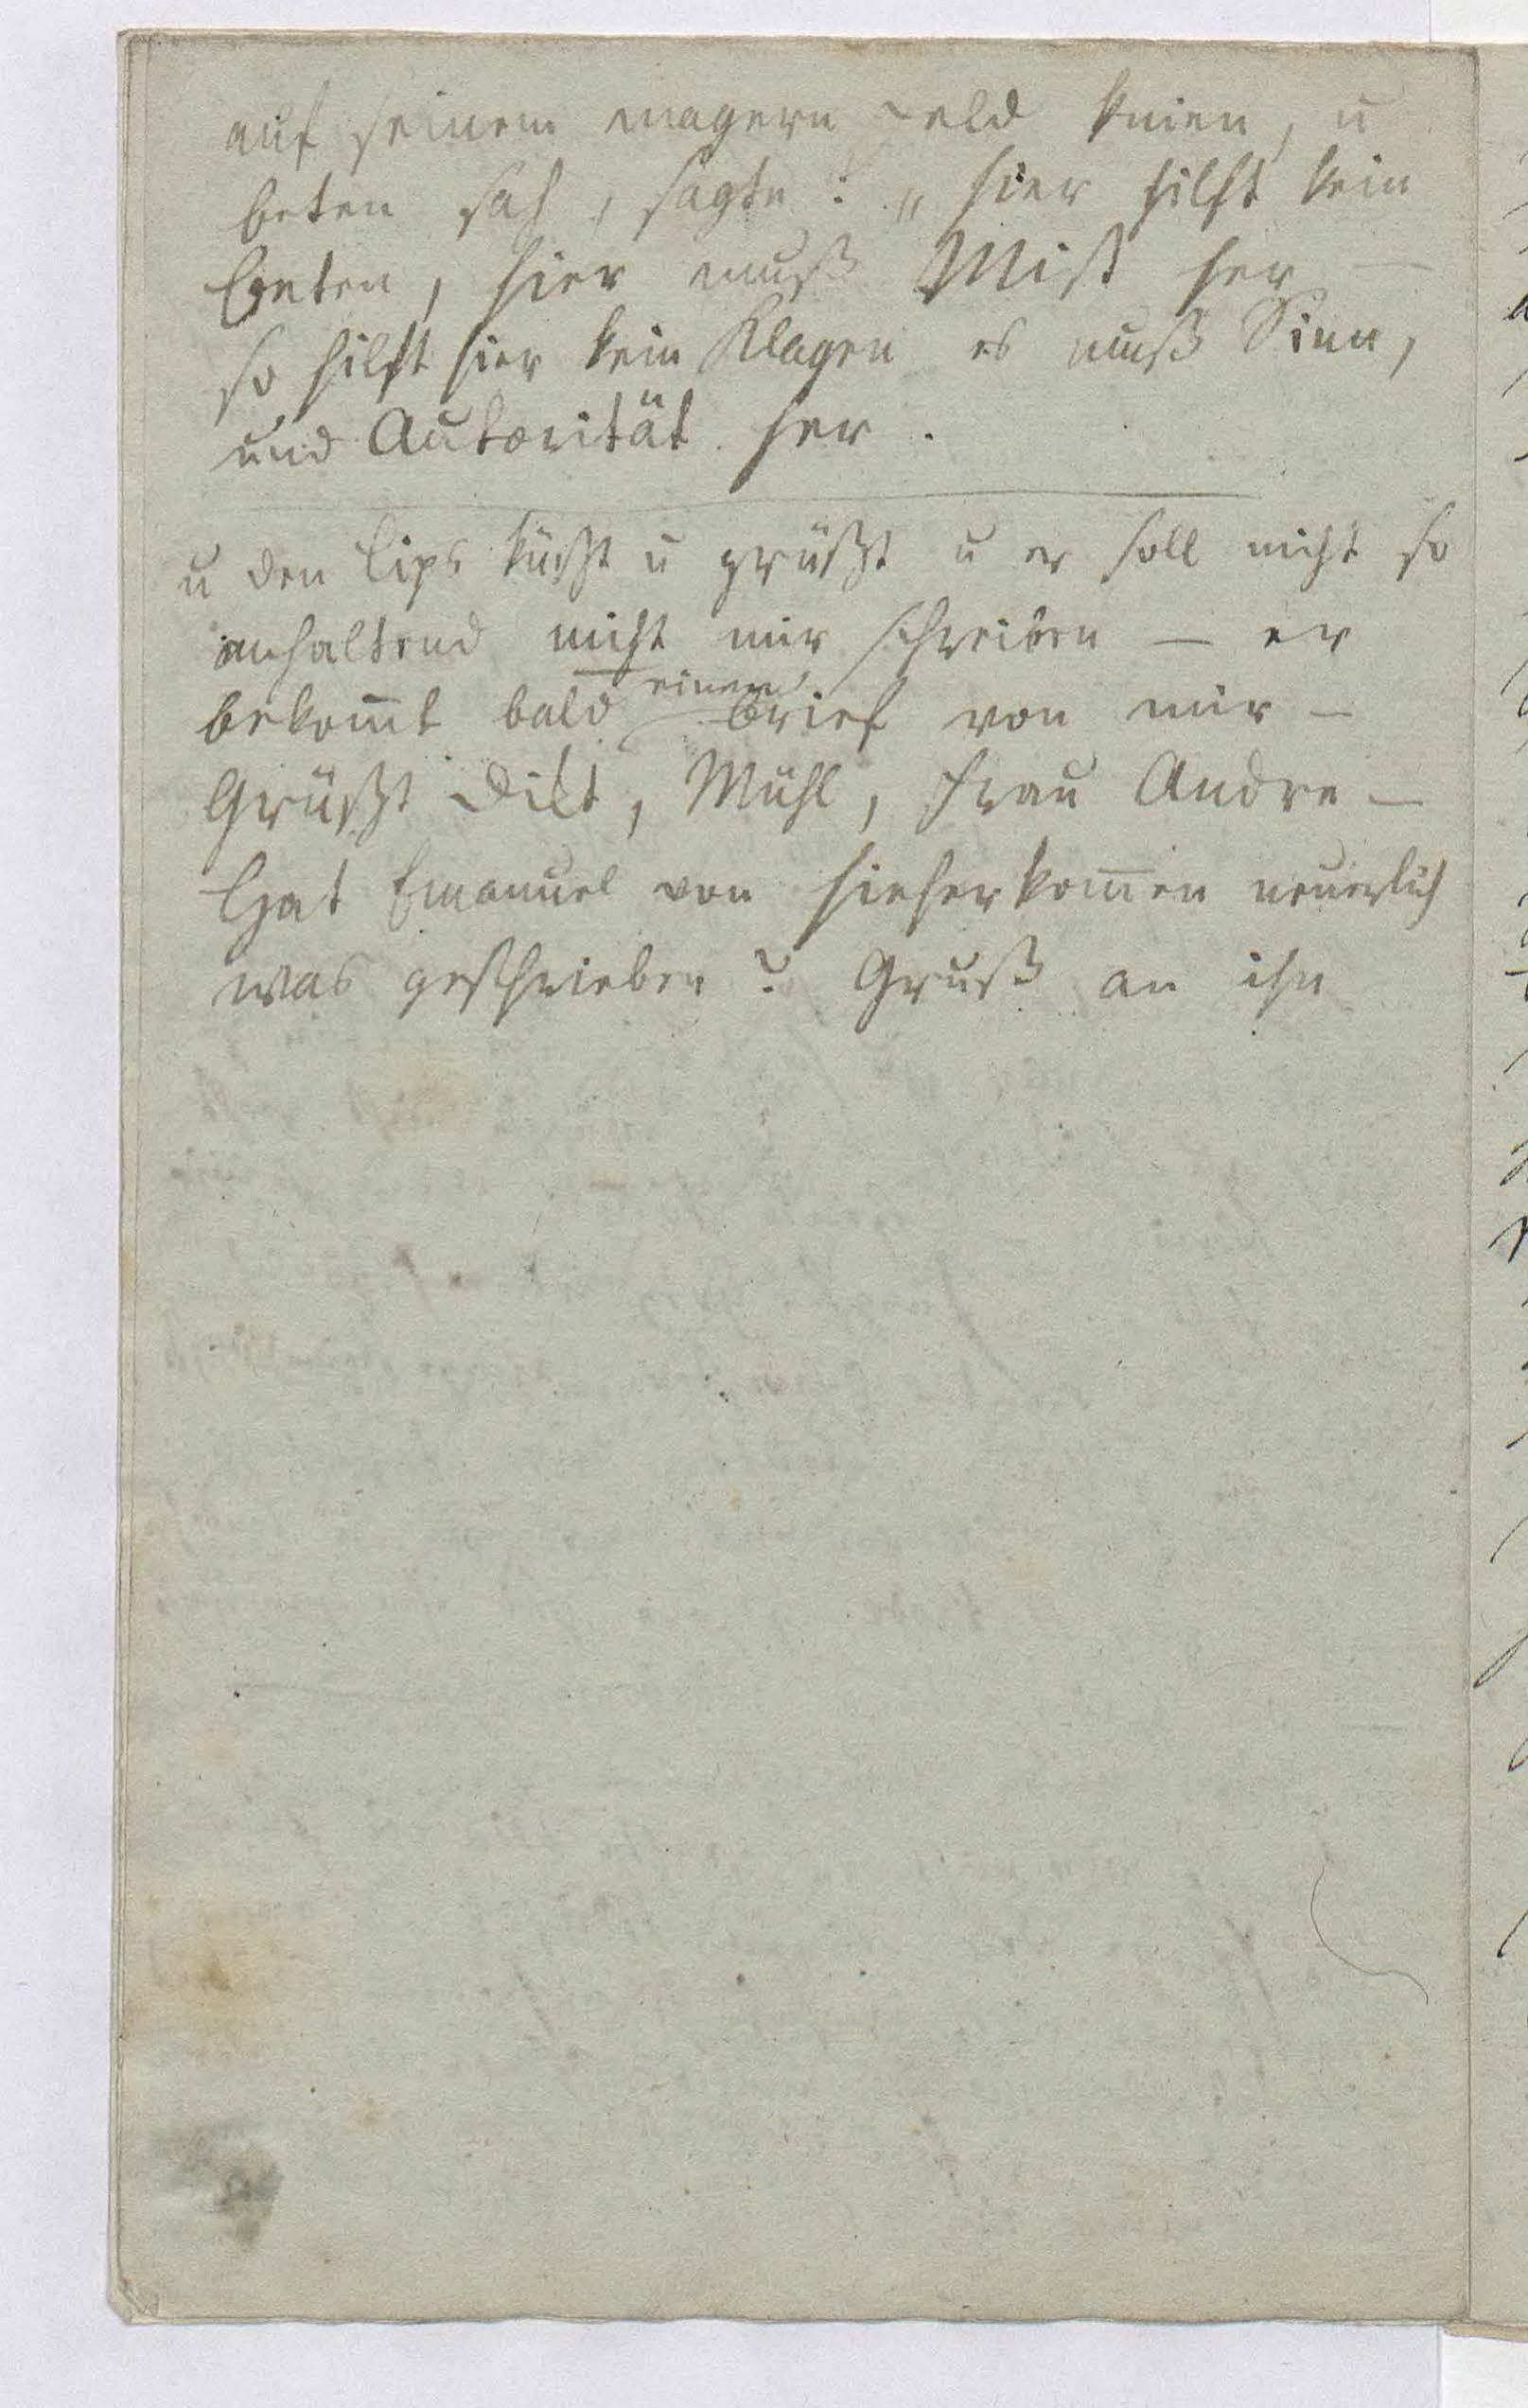 auf seinem magern Feld knien, u
beten sah, sagte: „hier hilft kein
Beten, hier muß Mist her —
so hilft hier kein Klagen es muß Sinn,
und Autorität her.
u den Lips küßt u grüßt u er soll nicht so
anhaltend nicht mir schreiben — er
bekom̄t bald einen Brief von mir —
Grüßt Dilt, Mühl, Frau Andre —
Hat Emanuel von hieherkom̄en neuerlich
was geschrieben? Gruß an ihn